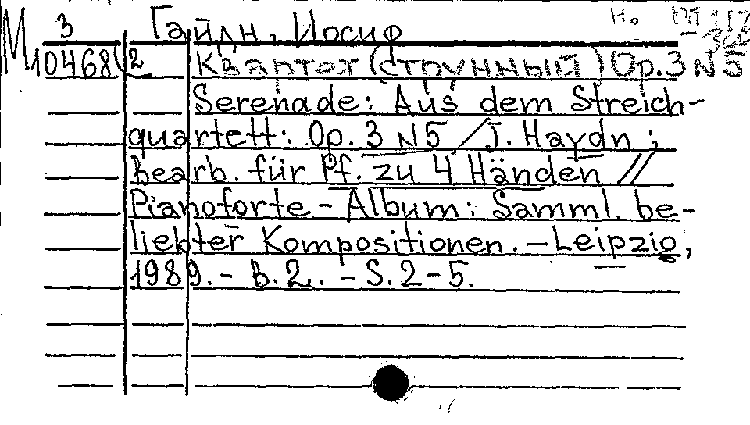 М 3 Гайдн, Иосиф
10468(2 Квартет (струнный) Op.3 N5
Serenade: Aus dem Streich-
quartett: Op. 3 N5 / J. Haydn ;
bearb. für Pf. zu 4 Händen //
Pianoforte - Album: Samml. be-
liebter Kompositionen. - Leipzig,
1989. - B. 2. - S. 2-5.